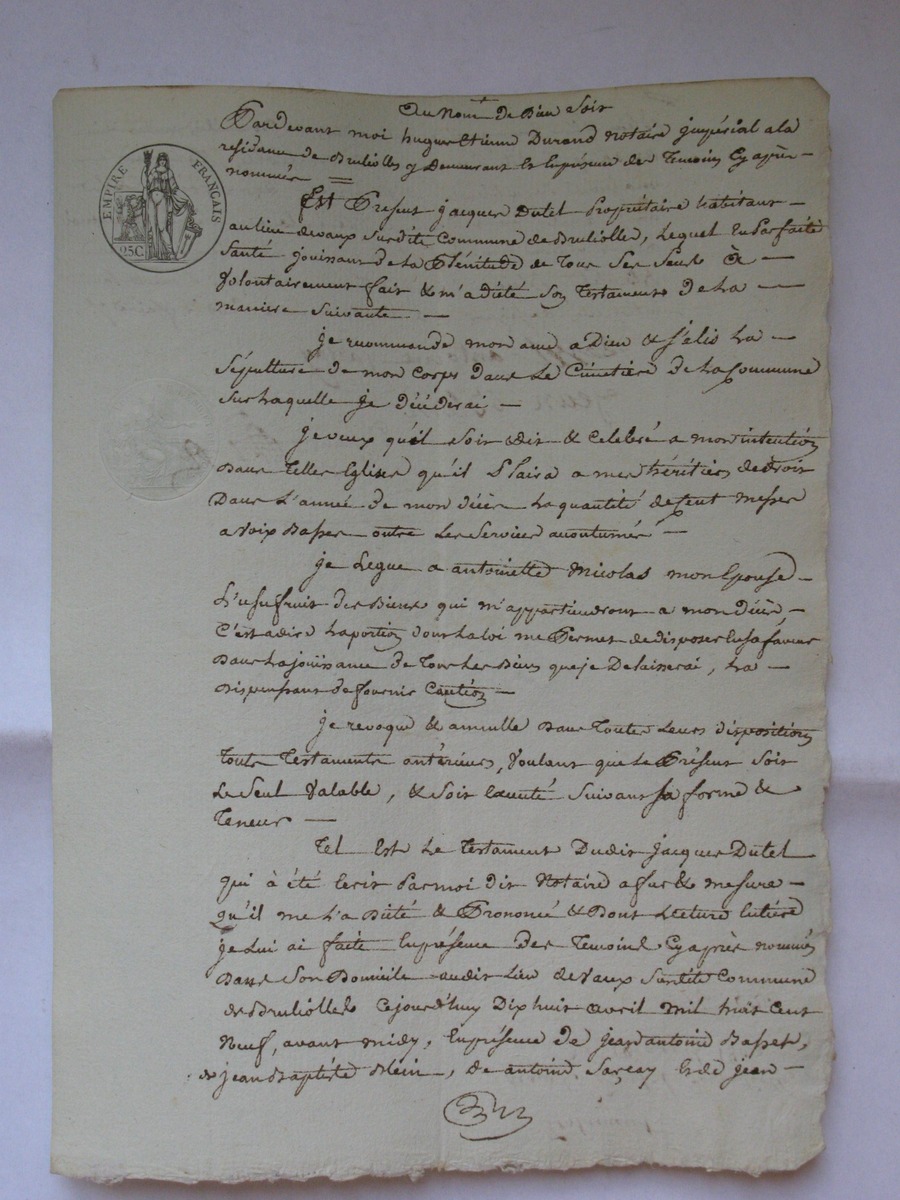 Au Nom De Dieu Soit
Pardevant moi hugues Etienne Durand Notaire jmpérial ala
residence de Brullioles y Demeurant En Enprésence des Temoins Cyaprès
nommés =
EMPIRE FRANÇAIS
25C.
Est Présent jacques Dutel Propriétaire habitant
aulieu devaux Surdite Commune de Brullioles, Lequel En Parfaite
Santé jouissant de La Plénitude de Tous Ses Sens À
Volontairement fait & m'a dicté Son Testament De La
maniere Suivante
je recommande mon ame a Dieu & j'élis La
Sépulture de mon Corps Dans Le Cimetière de La Commune
Sur Laquelle je Décéderai
je veux qu'il Soit dit & Celebré a mon intention
Dans Telles Eglises qu'il Plaira a mes hérétiers de droit
Dans L'année de mon Décès La quantité de Cent Messes
a Voix Basses outre Les Services accoutumés
je Legue a antoinette Nicolas mon Epouse
L'usufruit des Biens qui m'appartiendront a mon Décès,
C'est adire La portion dont La Loi me Permet de disposer En sa faveur
Dans La jouissance de Tous Les Biens que je Delaisserai, La
Dispensant de fournir Caution
je revoque & annulle Dans Toutes Leurs dispositions
touts Testaments antérieurs, Voulant que Le Présent Soit
Le Seul Valable, & Soit Executé Suivant Sa forme &
Teneur
Tel Est Le Testament Dudit jacques Dutel
qui à été Ecrit Parmoi dit Notaire afur & mesure
qu'il me L'a Dicté & Prononcé & Dont Lecture Entière
je Lui ai faite Enprésence Des Temoins Cyaprès nommés
Dans Son Domicile audit Lieu de Vaux Surdite Commune
de Brullioles Cejourd'huy Dix huit avril Mil huit Cent
Neuf, avant midy, Enprésence de jean antoine Basset,
de jean Baptiste Blein, de antoine Sarçay & de jean